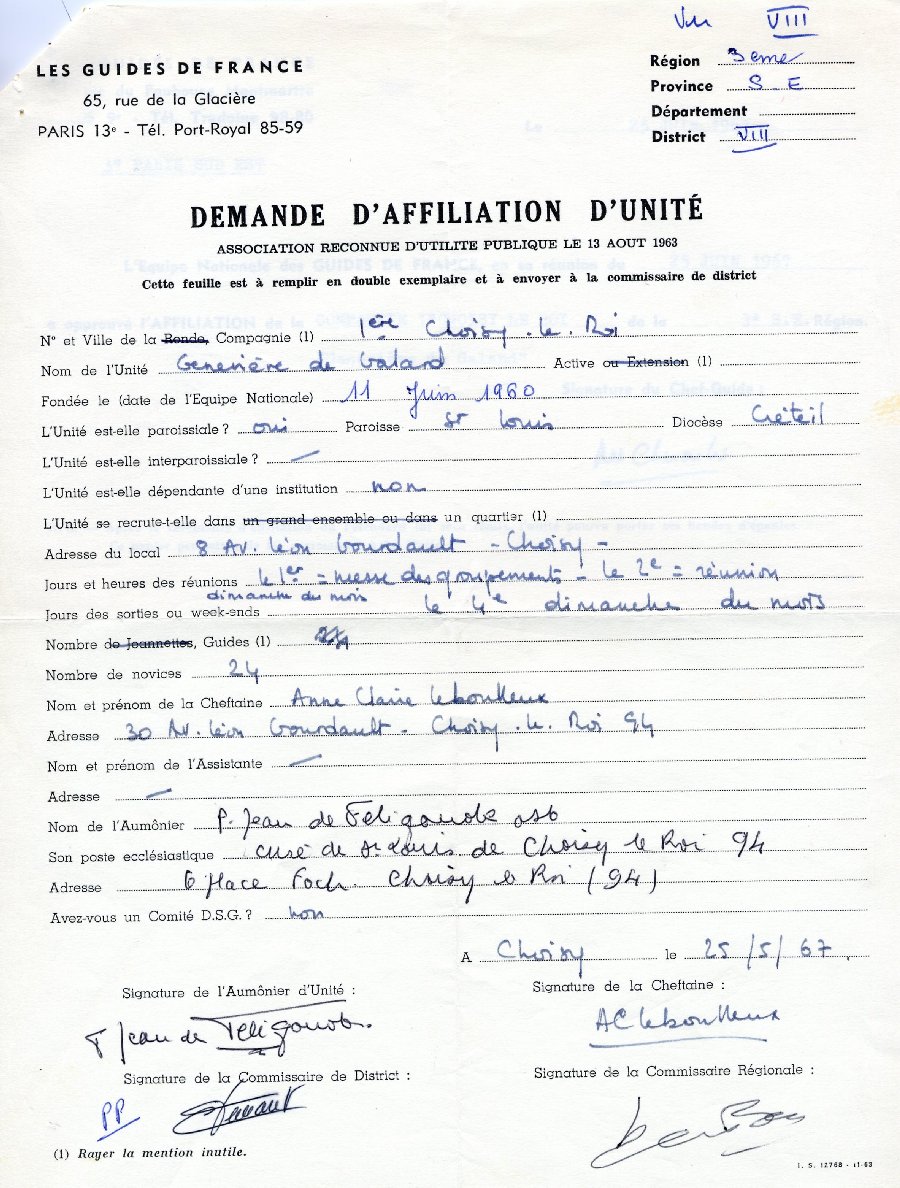 Vu VIII
LES GUIDES DE FRANCE
65, rue de la Glacière
PARIS 13e - Tél. Port-Royal 85-59
Région 3eme
Province S-E
Département
District VIII
DEMANDE D'AFFILIATION D'UNITÉ
ASSOCIATION RECONNUE D'UTILITE PUBLIQUE LE 13 AOUT 1963
Cette feuille est à remplir en double exemplaire et à envoyer à la commissaire de district
N° et Ville de la Ronde, Compagnie (1) 1ère Choisy-le-Roi
Nom de l'Unité Geneviève de Galard Active ou Extension (1)
Fondée le (date de l'Equipe Nationale) 11 Juin 1960
L'Unité est-elle paroissiale ? oui Paroisse St Louis Diocèse Créteil
L'Unité est-elle interparoissiale ? —
L'Unité est-elle dépendante d'une institution non
L'Unité se recrute-t-elle dans un grand ensemble ou dans un quartier (1)
Adresse du local 8 Av. Léon Gourdault - Choisy -
Jours et heures des réunions le 1er = messe des groupements - le 2e = réunion
dimanche du mois
Jours des sorties ou week-ends le 4e dimanche du mois
Nombre de Jeannettes, Guides (1)
Nombre de novices 24
Nom et prénom de la Cheftaine Anne Claire Leboulleux
Adresse 30 Av. Léon Gourdault - Choisy-le-Roi 94
Nom et prénom de l'Assistante —
Adresse —
Nom de l'Aumônier P. Jean de Féligonde osb
Son poste ecclésiastique curé de St Louis de Choisy le Roi 94
Adresse 6 place Foch. Choisy le Roi (94)
Avez-vous un Comité D.S.G. ? non
A Choisy le 25/5/67.
Signature de l'Aumônier d'Unité :
Signature de la Cheftaine :
Jean de Féligonde.
AC Leboulleux
Signature de la Commissaire de District :
Signature de la Commissaire Régionale :
PP
(1) Rayer la mention inutile.
I. S. 12768 - 11-63